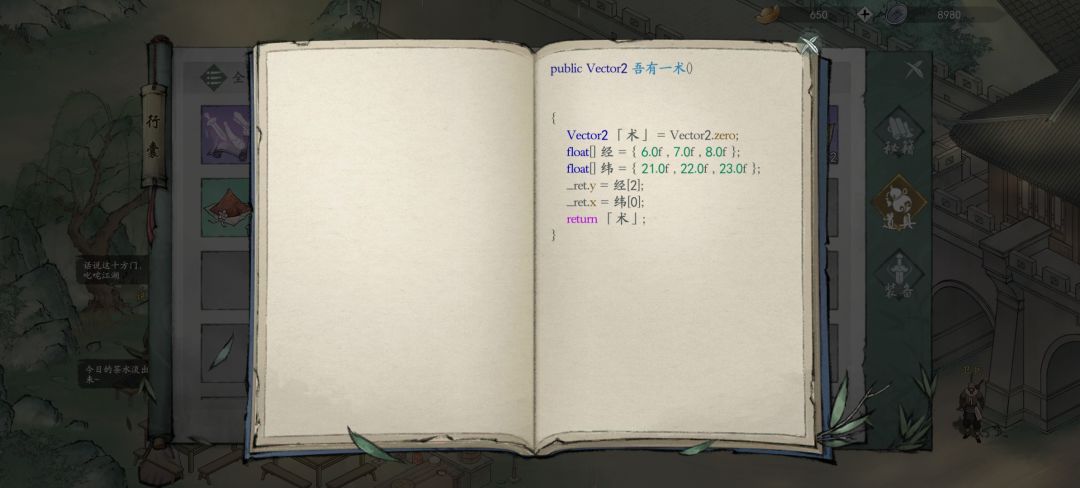 650
8980
全
行囊
public Vector2 吾有一术()
{
Vector2 「术」 = Vector2.zero;
float[] 经 = { 6.0f , 7.0f , 8.0f };
float[] 纬 = { 21.0f , 22.0f , 23.0f };
_ret.y = 经[2];
_ret.x = 纬[0];
return 「术」;
}
秘籍
道具
装备
话说这十方门,
叱咤江湖
今日的茶水淡出
来~